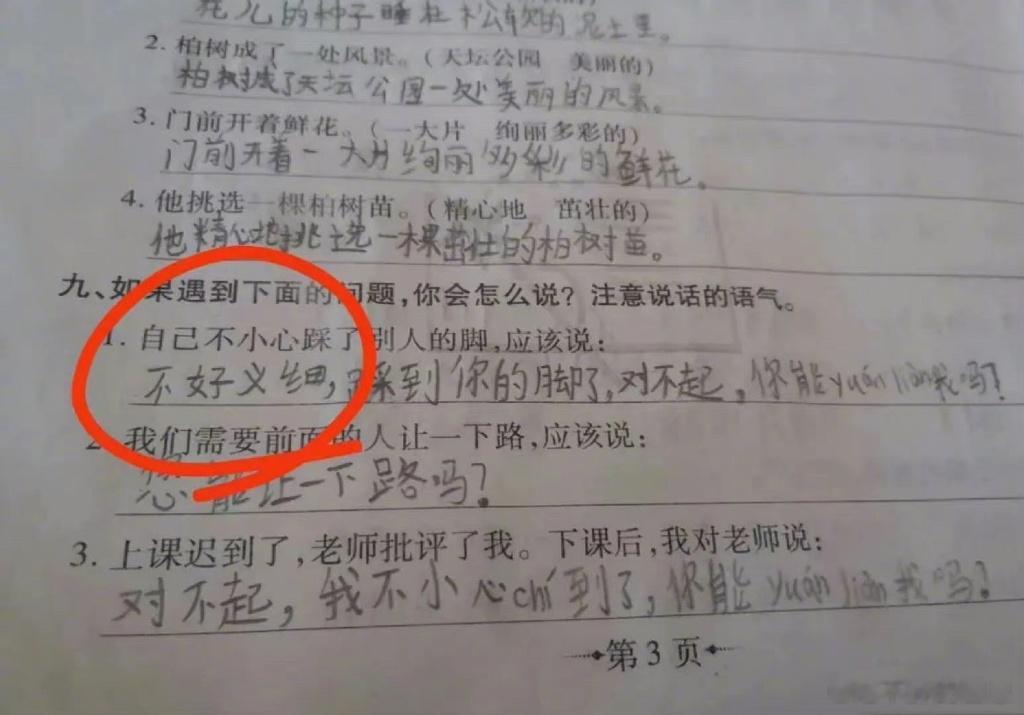 花儿的种子睡在松软的泥土里。
2. 柏树成了一处风景。(天坛公园 美丽的)
柏树城了天坛公园一处美丽的风景。
3. 门前开着鲜花。(一大片 绚丽多彩的)
门前开着一大片绚丽多彩的鲜花。
4. 他挑选一棵柏树苗。(精心地 茁壮的)
他精心地挑选一棵茁壮的柏树苗。
九、如果遇到下面的问题,你会怎么说? 注意说话的语气。
1. 自己不小心踩了别人的脚,应该说:
不好义细,踩到你的脚了,对不起,你能yuán liàn我吗?
2. 我们需要前面的人让一下路,应该说:
您能让一下路吗?
3. 上课迟到了,老师批评了我。下课后,我对老师说:
对不起,我不小心chí到了,你能yuán liàn我吗?
第 3 页